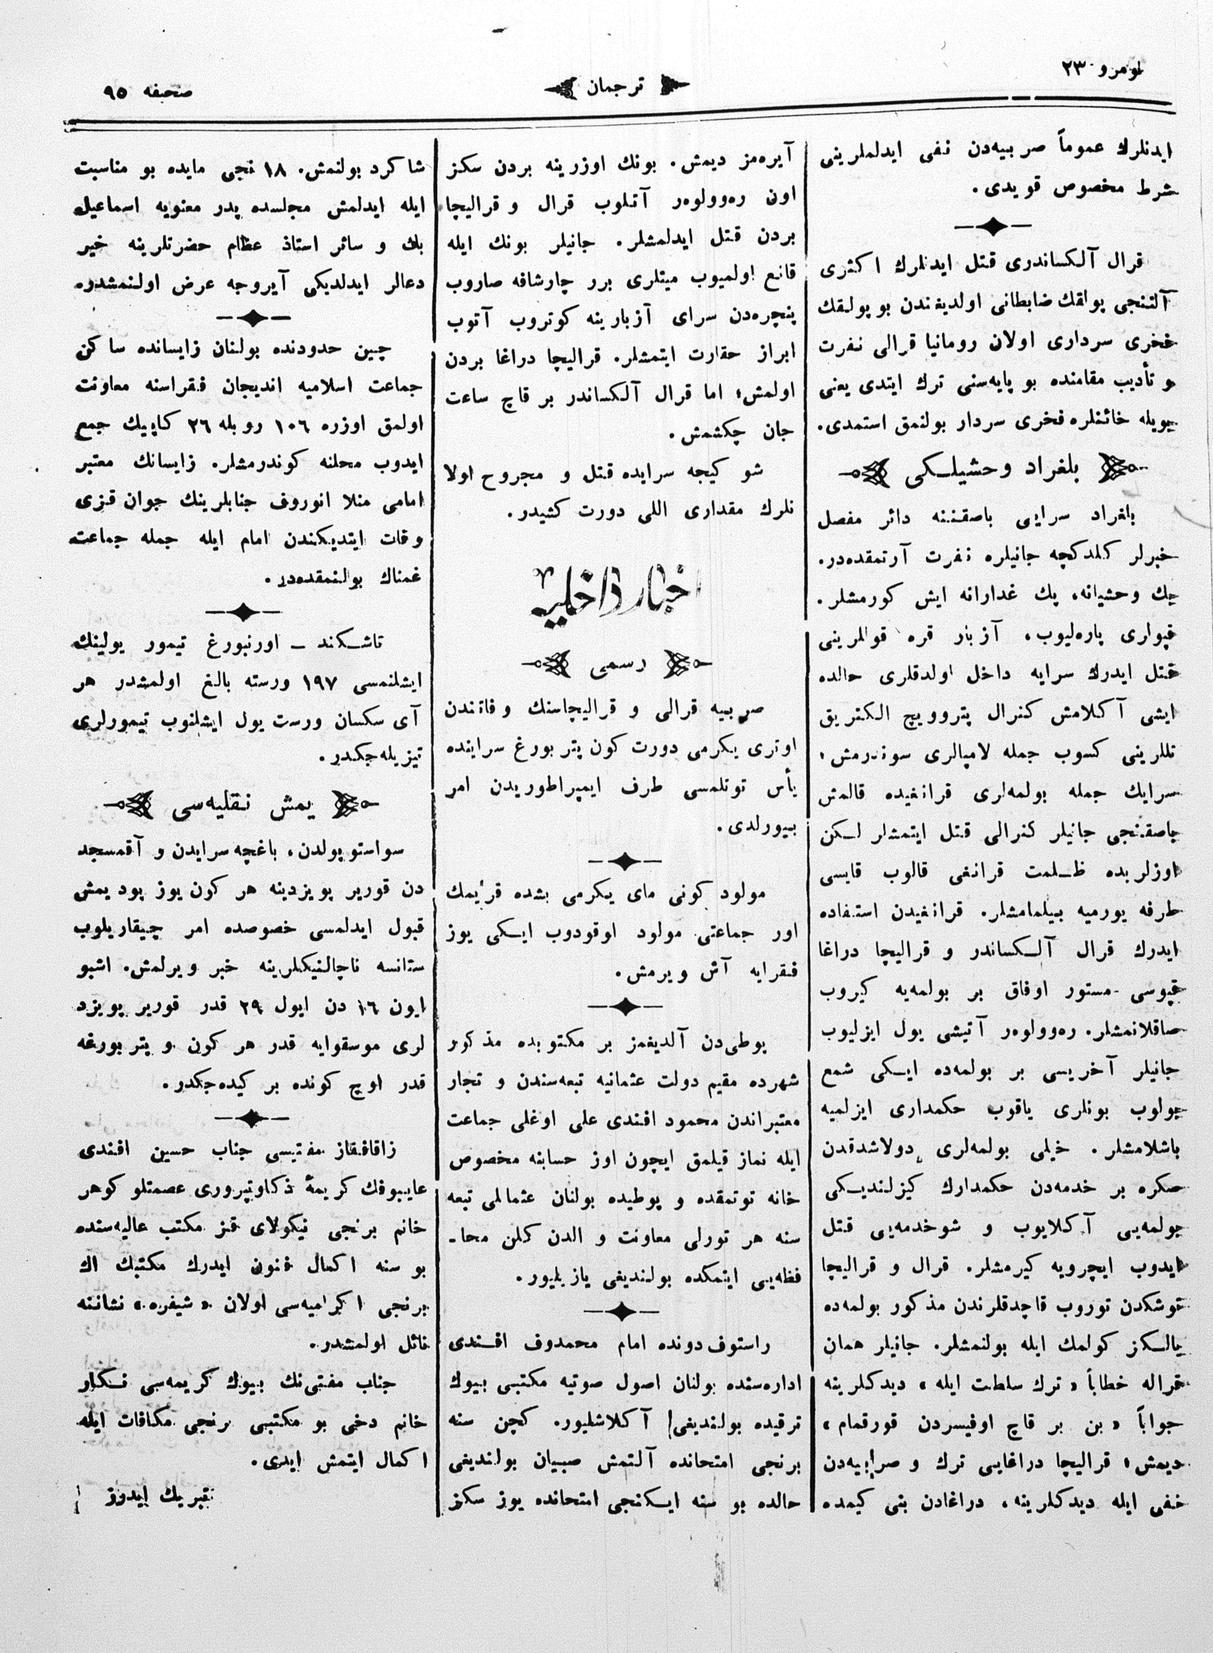 نومرو ٢٣
ترجمان
صحیفه ٩٥
ایدنلرك عموماً صربیه‌دن نفی ایدلملرینی
شرط مخصوص قویدی.
قرال آلكساندری قتل ایدنلرك اكثری
آلتنجی پولقك ضابطانی اولدیغندن بو پولقك
فخری سرداری اولان رومانیا قرالی نفرت
و تأدیب مقامنده بو پایه‌سنی ترك ایتدی یعنی
بویله خائنلره فخری سردار بولنمق استمدی.
بلغراد وحشیلكی
بلغراد سرایی باصقننه دائر مفصل
خبرلر كلدكچه جانیلره نفرت آرتمقده‌در.
پك وحشیانه، پك غدارانه ایش كورمشلر.
قپولری پاره‌لیوب، آزبار قره قوللرینی
قتل ایدرك سرایه داخل اولدقلری حالده
ایشی آكلامش كنرال پتروویچ الكتریق
تللرینی كسوب جمله لامپالری سوندرمش؛
سرایك جمله بولمه‌لری قرانغیده قالمش
باصقنجی جانیلر كنرالی قتل ایتمشلر لكن
اوزلریده ظلمت قرانغی قالوب قایسی
طرفه یورمیه بیلمامشلر. قرانغیدن استفاده
ایدرك قرال آلكساندر و قرالیچا دراغا
قپوسی مستور اوفاق بر بولمه‌یه كیروب
صاقلانمشلر. ره‌وولوه‌ر آتیشی یول ایزلیوب
جانیلر آخریسی بر بولمه‌ده ایكی شمع
بولوب بونلری یاقوب حكمداری ایزلمیه
باشلامشلر. خیلی بولمه‌لری دولاشدقدن
صكره بر خدمه‌دن حكمدارك كیزلندیكی
بولمه‌یی آكلایوب و شو خدمه‌یی قتل
ایدوب ایچرویه كیرمشلر. قرال و قرالیچا
توشكدن توروب قاچدقلرندن مذكور بولمه‌ده
یالكز كولمك ایله بولنمشلر. جانیلر همان
قراله خطاباً «ترك سلطت ایله» دیدكلرینه
جواباً «بن بر قاچ اوفیسردن قورقمام»
دیمش؛ قرالیچا دراغایی ترك و صربیه‌دن
نفی ایله دیدكلرینه، دراغادن بنی كیمده
آیره‌مز دیمش. بونك اوزرینه بردن سكز
اون ره‌وولوه‌ر آتلوب قرال و قرالیچا
بردن قتل ایدلمشلر. جانیلر بونك ایله
قانع اولمیوب میتلری برر چارشافه صاروب
پنچره‌دن سرای آزبارینه كوتروب آتوب
ابراز حقارت ایتمشلر. قرالیچا دراغا بردن
اولمش؛ اما قرال آلكساندر بر قاچ ساعت
جان چكشمش.
شو كیجه سرایده قتل و مجروح اولا
نلرك مقداری اللی دورت كشیدر.
اخبار داخلیه
رسمی
صربیه قرالی و قرالیچاسنك وفاتندن
اوتری یكرمی دورت كون پتربورغ سراینده
یأس توتلمسی طرف ایمپراطوریدن امر
بیورلدی.
مولود كونی مای یكرمی بشده قریمك
اور جماعتی مولود اوقودوب ایكی یوز
فقرایه آش ویرمش.
پوطی‌دن آلدیغمز بر مكتوبده مذكور
شهرده مقیم دولت عثمانیه تبعه‌سندن و تجار
معتبراندن محمود افندی علی اوغلی جماعت
ایله نماز قیلمق ایچون اوز حسابنه مخصوص
خانه توتمقده و پوطیده بولنان عثمانلی تبعه
سنه هر تورلی معاونت و الدن كلن محا-
فظه‌یی ایتمكده بولندیغی یازیلیور.
راستوف دونده امام محمدوف افندی
اداره‌سنده بولنان اصول صوتیه مكتبی بیوك
ترقیده بولندیغی آكلاشلیور. كچن سنه
برنجی امتحانده آلتمش صبیان بولندیغی
حالده بو سنه ایكنجی امتحانده یوز سكز
شاكرد بولنمش. ١٨ نجی مایده بو مناسبت
ایله ایدلمش مجلسده پدر معنویه اسماعیل
بك و سائر استاذ عظام حضرتلرینه خیر
دعالر ایدلدیكی آیروجه عرض اولنمشدر.
چین حدودنده بولنان زایسانده ساكن
جماعت اسلامیه اندیجان فقراسنه معاونت
اولمق اوزره ١٠٦ روبله ٢٦ كاپیك جمع
ایدوب محلنه كوندرمشلر. زایسانك معتبر
امامی منلا انوروف جنابلرینك جوان قزی
وفات ایتدیكندن امام ایله جمله جماعت
غمناك بولنمقده‌در.
تاشكند ــ اورنبورغ تیمور یولینك
ایشلنمسی ١٩٧ ورسته بالغ اولمشدر هر
آی سكسان ورست یول ایشلنوب تیمورلری
تیزیله‌جكدر.
یمش نقلیه‌سی
سواستوپولدن، باغچه سرایدن و آقمسجد
دن قوریر پویزدینه هر كون یوز پود یمش
قبول ایدلمسی خصوصده امر چیقاریلوب
ستانسه ناچالنیكلرینه خبر ویرلمش. اشبو
ایون ١٦ دن ایول ٢٩ قدر قوریر پویزد
لری موسقوایه قدر هر كون و پتربورغه
قدر اوچ كونده بر كیده‌جكدر.
زاقافقاز مفتیسی جناب حسین افندی
غایبوفك كریمهٔ ذكاوتپروری عصمتلو كوهر
خانم برنجی نیكولای قز مكتب عالیه‌سنده
بو سنه اكمال فنون ایدرك مكتبك اك
برنجی اكرامیه‌سی اولان «شیفره» نشاننه
نائل اولمشدر.
جناب مفتی‌نك بیوك كریمه‌سی نكار
خانم دخی بو مكتبی برنجی مكافات ایله
اكمال ایتمش ایدی.
تبریك ایدوز